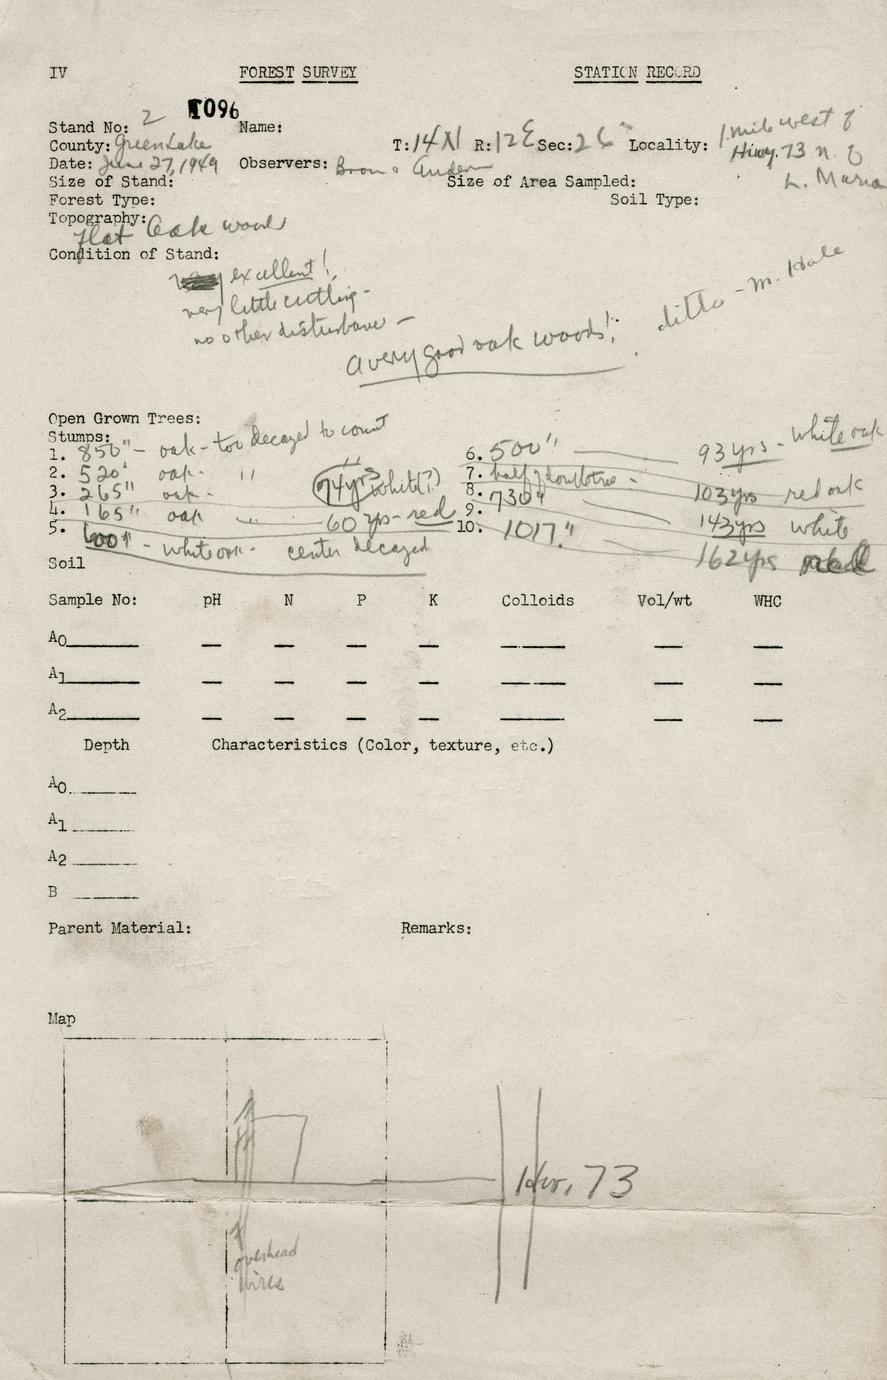 IV FOREST SURVEY STATION RECORD
1096
Stand No: 2 Name:
County: Green Lake T: 14N R: 12E Sec: 26 Locality: 1 mile west of
Hiwy. 73 n. of
L. Maria
Date: June 27, 1949 Observers:
Size of Stand: Size of Area Sampled:
Forest Type: Soil Type:
Topography:
flat Oak woods
Condition of Stand:
very excellent!,
very little cutting -
no other disturbance -
a very good oak woods!; ditto - M. Hale
Open Grown Trees:
Stumps:
1. 850" - oak - too decayed to count
2. 520" oak - "
3. 265" oak - 74 yrs white(?)
4. 165" oak " - 60 yrs - red
5. 600" - white oak - center decayed
6. 500" 93 yrs - white oak
7. half of double tree -
8. 730" 103 yrs red oak
9. 143 yrs white
10. 1017" 162 yrs
Soil
Sample No: pH N P K Colloids Vol/wt WHC
A0
A1
A2
Depth Characteristics (Color, texture, etc.)
A0
A1
A2
B
Parent Material: Remarks:
Map
Hw. 73
overhead
wires